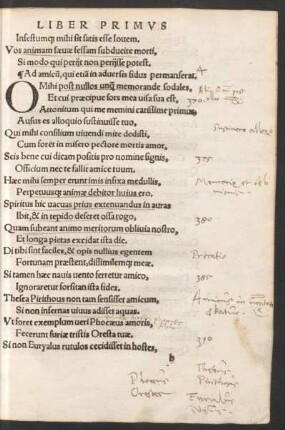 LIBER PRIMVS
Insestumq; mihi sit satis esse Iouem.
Vos animam sæuæ fessam subducite morti,
Si modo qui perijt non perijsse potest.
¶Ad amicũ, qui etiã in aduersis fidus permanserat.
O Mihi post nullos unq̃ memorande sodales,
Et cui præcipue sors mea uisa sua est,
Attonitum qui me memini carissime primus
Ausus es alloquio sustinuisse tuo,
Qui mihi consilium uiuendi mite dedisti,
Cum foret in misero pectore mortis amor,
Scis bene cui dicam positis pro nomine signis,
Officium nec te fallit amice tuum.
Hæc mihi semper erunt imis infixa medullis,
Perpetuusq; animæ debitor huius ero.
Spiritus hic uacuas prius extenuandus in auras
Ibit, & in tepido deseret ossa rogo,
Quam subeant animo meritorum obliuia nostro,
Et longa pietas excidat ista die.
Di tibi sint faciles, & opis nullius egentem
Fortunam præstent, dissimilemq; meæ.
Si tamen hæc nauis uento ferretur amico,
Ignoraretur forsitan ista fides.
Thesea Pirithous non tam sensisset amicum,
Si non infernas uiuus adisset aquas.
Vt foret exemplum ueri Phocæus amoris,
Fecerunt furiæ tristis Oresta tuæ.
Si non Euryalus rutulos cecidisset in hostes,
b
375
380
385
390
Orestes